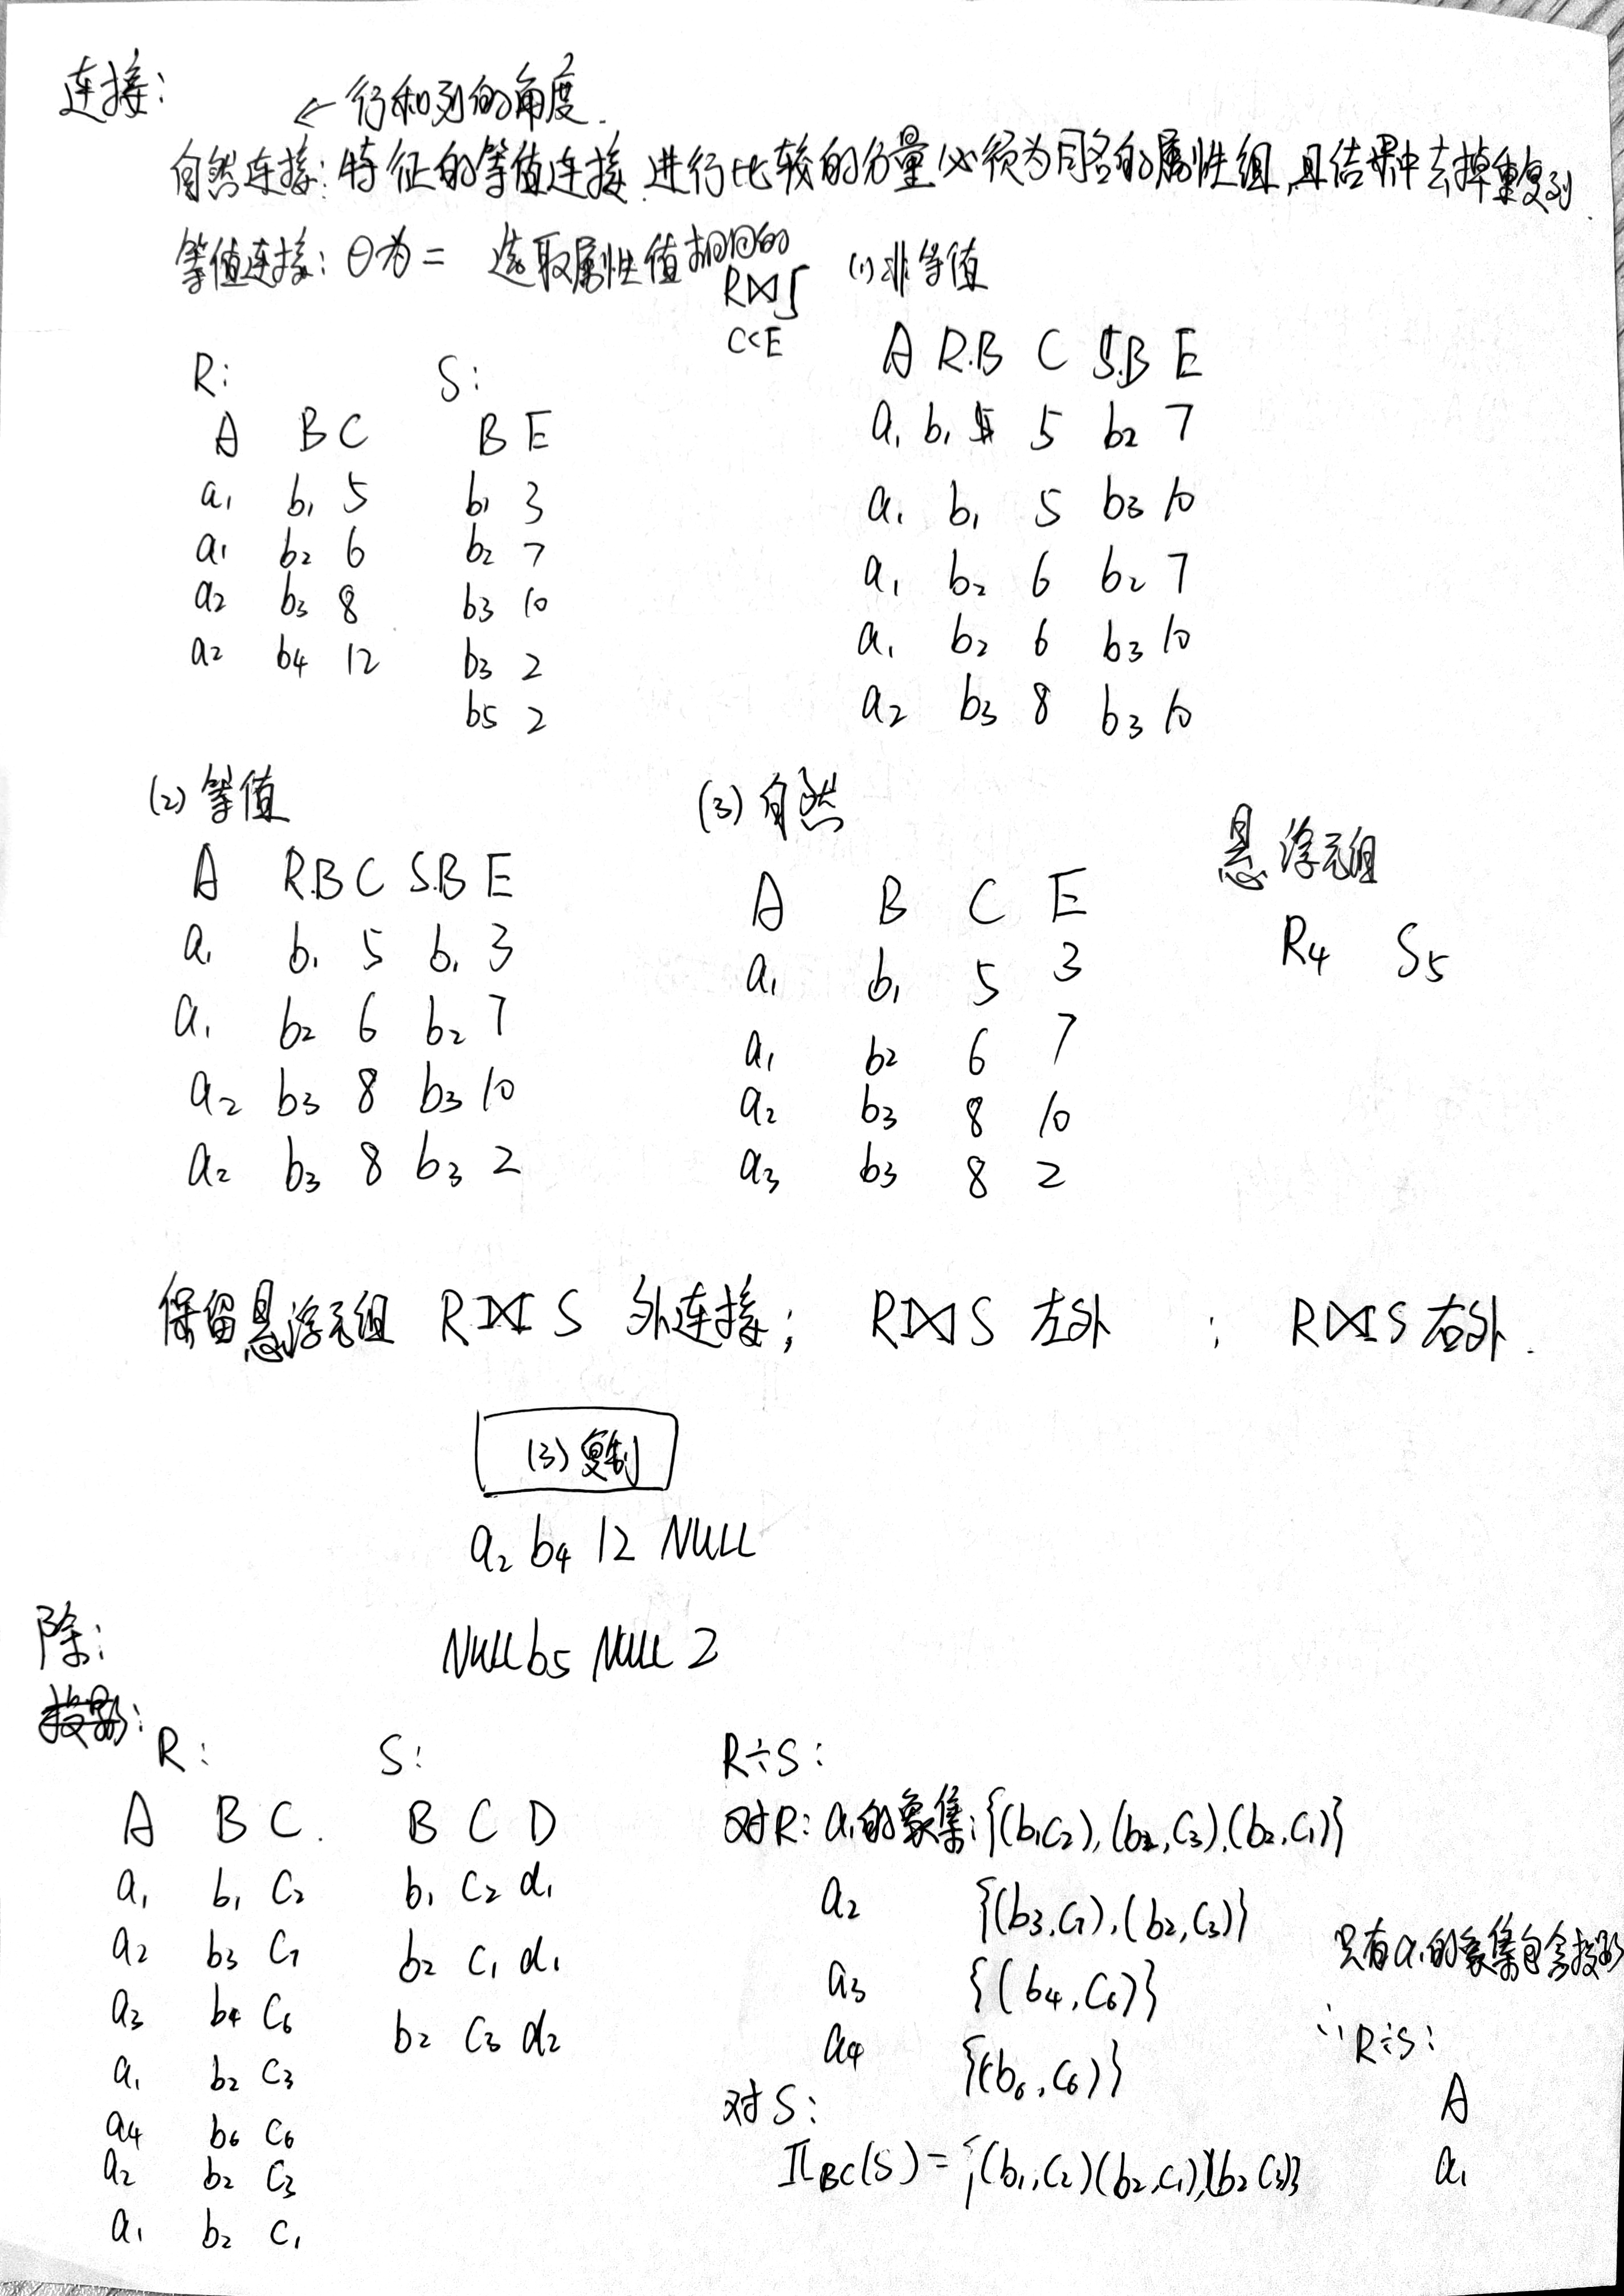 连接:
← 行和列的角度.
自然连接: 特征的等值连接.进行比较的分量必须为同名的属性组,且结果中去掉重复列.
等值连接: θ为= 选取属性值相同的
R⋈S
C<E
(1)非等值
R:
A B C
a₁ b₁ 5
a₁ b₂ 6
a₂ b₃ 8
a₂ b₄ 12
S:
B E
b₁ 3
b₂ 7
b₃ 10
b₃ 2
b₅ 2
A R.B C S.B E
a₁ b₁ 5 b₂ 7
a₁ b₁ 5 b₃ 10
a₁ b₂ 6 b₂ 7
a₁ b₂ 6 b₃ 10
a₂ b₃ 8 b₃ 10
(2)等值
A R.B C S.B E
a₁ b₁ 5 b₁ 3
a₁ b₂ 6 b₂ 7
a₂ b₃ 8 b₃ 10
a₂ b₃ 8 b₃ 2
(3)自然
A B C E
a₁ b₁ 5 3
a₁ b₂ 6 7
a₂ b₃ 8 10
a₃ b₃ 8 2
悬浮元组
R₄ S₅
保留悬浮元组 R⟗S 外连接; R⟕S 左外 ; R⟖S 右外.
(3)复制
a₂ b₄ 12 NULL
NULL b₅ NULL 2
除:
投影:
R:
A B C.
a₁ b₁ C₂
a₂ b₃ C₇
a₃ b₄ C₆
a₁ b₂ C₃
a₄ b₆ C₆
a₂ b₂ C₃
a₁ b₂ C₁
S:
B C D
b₁ C₂ d₁
b₂ C₁ d₁
b₂ C₃ d₂
R÷S:
对R: a₁的象集:{(b₁C₂),(b₂,C₃).(b₂,C₁)}
a₂ {(b₃,C₇),(b₂,C₃)}
a₃ {(b₄,C₆)}
a₄ {(b₆,C₆)}
对S:
π_BC(S)={(b₁,C₂)(b₂,C₁),(b₂C₃)}
只有a₁的象集包含投影
∴R÷S:
A
a₁